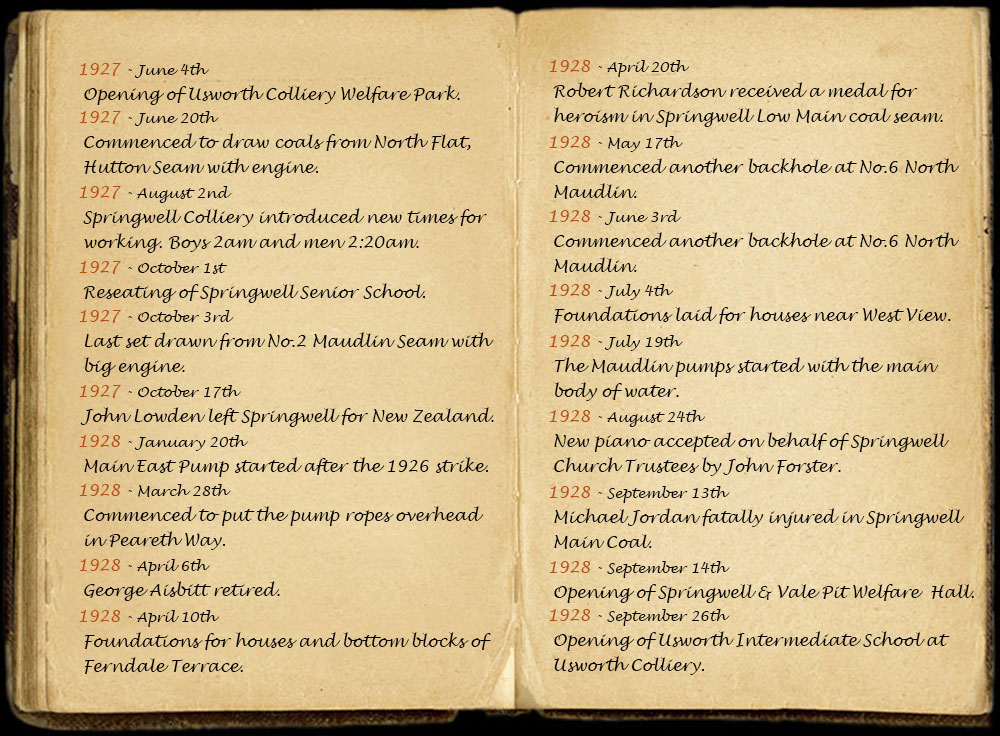 1927 - June 4th
Opening of Usworth Colliery Welfare Park.
1927 - June 20th
Commenced to draw coals from North Flat,
Hutton Seam with engine.
1927 - August 2nd
Springwell Colliery introduced new times for
working. Boys 2am and men 2:20am.
1927 - October 1st
Reseating of Springwell Senior School.
1927 - October 3rd
Last set drawn from No.2 Maudlin Seam with
big engine.
1927 - October 17th
John Lowden left Springwell for New Zealand.
1928 - January 20th
Main East Pump started after the 1926 strike.
1928 - March 28th
Commenced to put the pump ropes overhead
in Peareth Way.
1928 - April 6th
George Aisbitt retired.
1928 - April 10th
Foundations for houses and bottom blocks of
Ferndale Terrace.
1928 - April 20th
Robert Richardson received a medal for
heroism in Springwell Low Main coal seam.
1928 - May 17th
Commenced another backhole at No.6 North
Maudlin.
1928 - June 3rd
Commenced another backhole at No.6 North
Maudlin.
1928 - July 4th
Foundations laid for houses near West View.
1928 - July 19th
The Maudlin pumps started with the main
body of water.
1928 - August 24th
New piano accepted on behalf of Springwell
Church Trustees by John Forster.
1928 - September 13th
Michael Jordan fatally injured in Springwell
Main Coal.
1928 - September 14th
Opening of Springwell & Vale Pit Welfare Hall.
1928 - September 26th
Opening of Usworth Intermediate School at
Usworth Colliery.